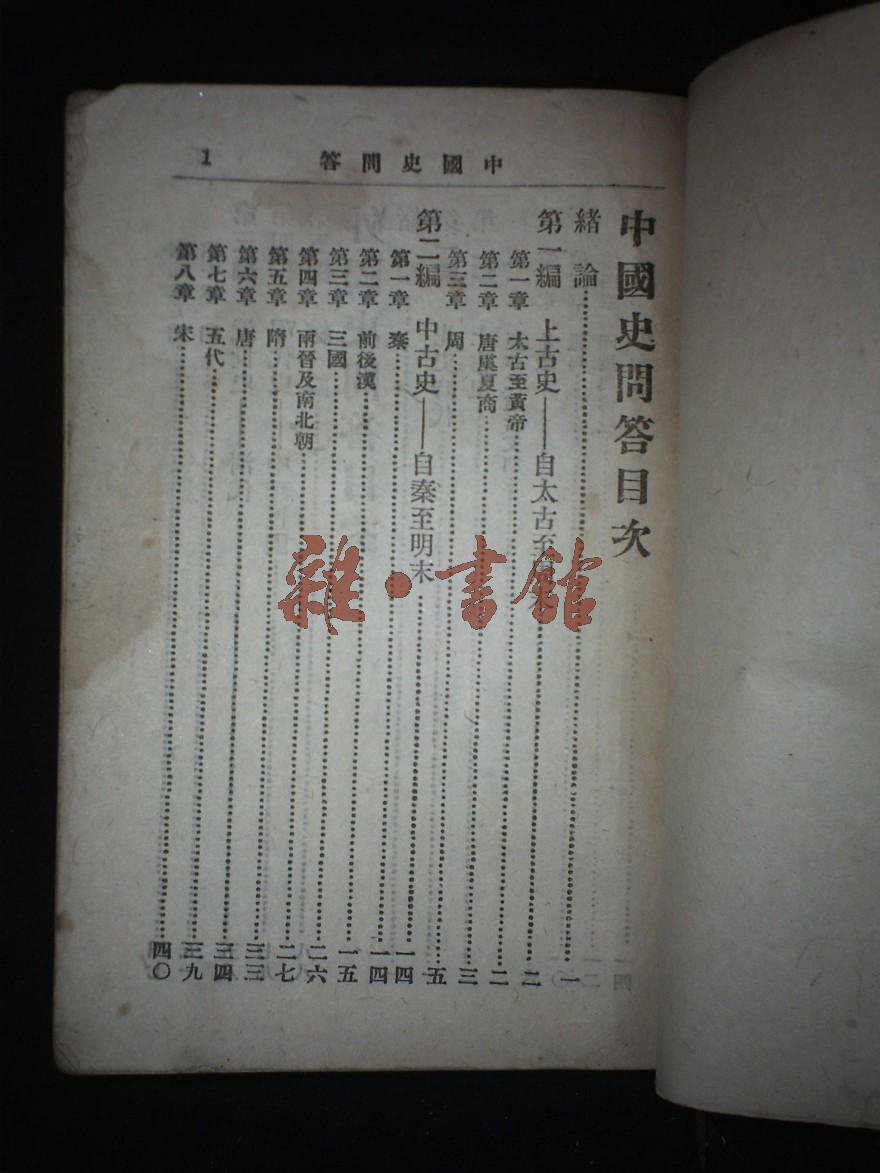 中國史問答 1
中國史問答目次
緒論……一
第一編 上古史——自太古至……二
第一章 太古至黃帝……二
第二章 唐虞夏商……三
第三章 周……五
第二編 中古史——自秦至明末……一四
第一章 秦……一四
第二章 前後漢……一五
第三章 三國……二六
第四章 兩晉及南北朝……二七
第五章 隋……三三
第六章 唐……三四
第七章 五代……三九
第八章 宋……四〇
雜·書館